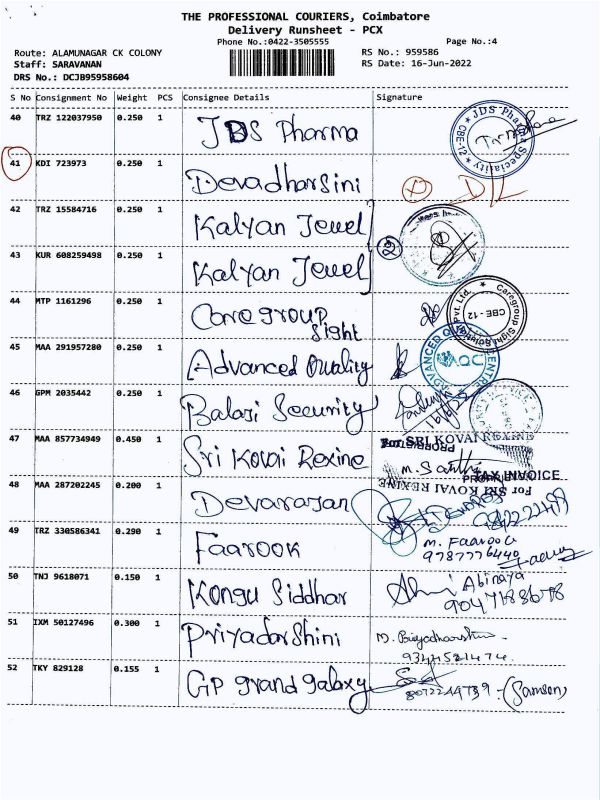 THE PROFESSIONAL COURIERS, Coimbatore
Delivery Runsheet - PCX
Phone No.:0422-3505555 Page No.:4
Route: ALAMUNAGAR CK COLONY RS No.: 959586
Staff: SARAVANAN RS Date: 16-Jun-2022
DRS No.: DCJB95958604
S No Consignment No Weight PCS Consignee Details Signature
40 TRZ 122037950 0.250 1 JDS Pharma
JDS Pharma Speciality CBE-12
41 KDI 723973 0.250 1 Devadharsini D/L
42 TRZ 15584716 0.250 1 Kalyan Jewel
43 KUR 608259498 0.250 1 Kalyan Jewel 2
44 MTP 1161296 0.250 1 Caregroup Sight
Caregroup Sight Pvt. Ltd. CBE-12
45 MAA 291957280 0.250 1 Advanced Quality
ADVANCED CENTRE AQC
46 GPM 2035442 0.250 1 Balaji Security 16/6/22
47 MAA 857734949 0.450 1 Sri Kovai Rexine
For SRI KOVAI REXINE
M. Santhi
TAX INVOICE
PROPRIETOR
For SRI KOVAI REXINE
48 MAA 287202245 0.200 1 Devarajan
49 TRZ 330586341 0.290 1 Faarook M. Faarook
9787776440
50 TNJ 9618071 0.150 1 Kongu Siddhar Abinaya
51 IXM 50127496 0.300 1 Priyadarshini
9344521474
52 TKY 829128 0.155 1 GP grand galaxy (Samson)